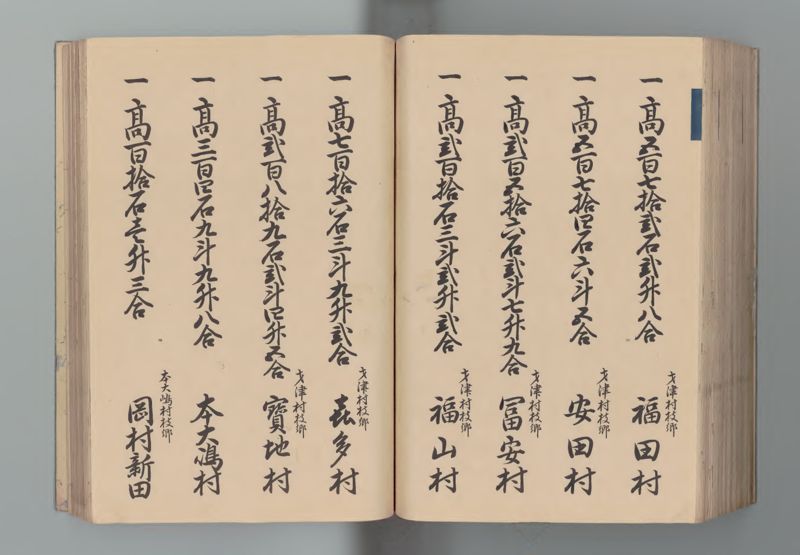 一 高五百七拾弐石弐升八合
才津村枝郷
福田村
一 高五百七拾四石六斗五合
才津村枝郷
安田村
一 高弐百五拾六石弐斗七升九合
才津村枝郷
冨安村
一 高弐百拾石三斗弐升弐合
才津村枝郷
福山村
一 高七百拾六石三斗九升弐合
才津村枝郷
喜多村
一 高弐百八拾九石弐斗四升五合
才津村枝郷
寶地村
一 高三百四石九斗九升八合
本大嶋村
一 高百拾石壱升三合
本大嶋村枝郷
岡村新田